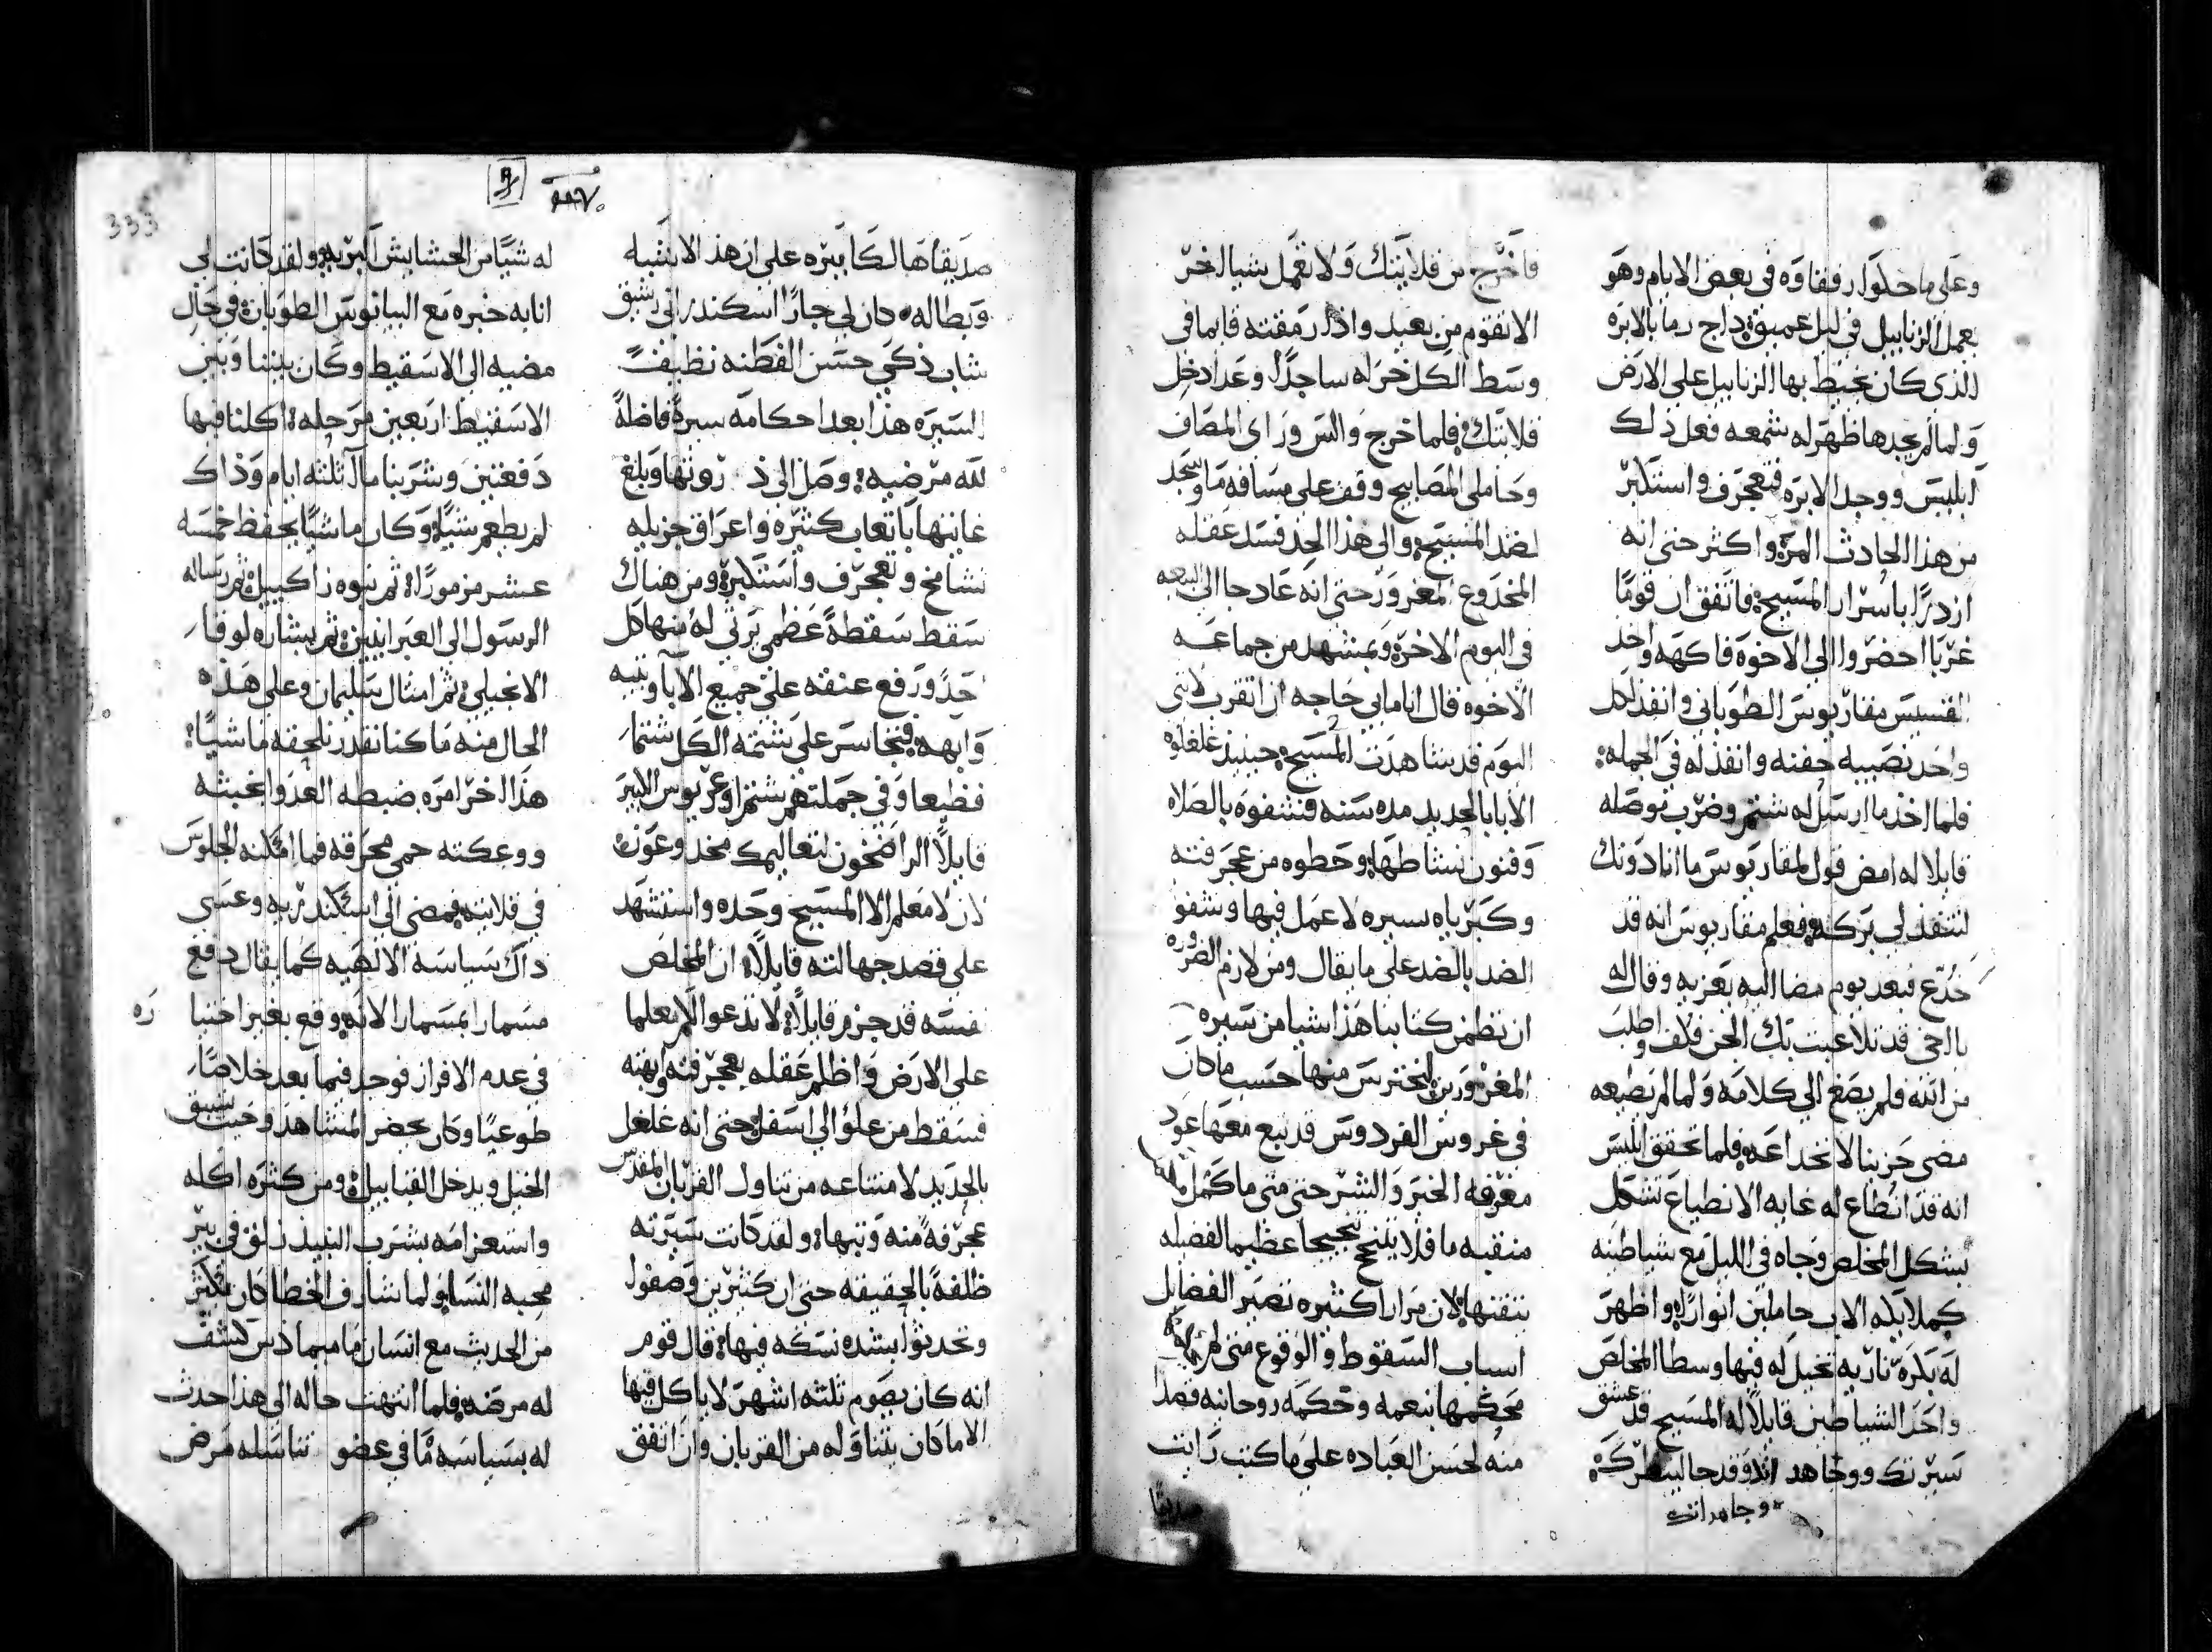 وعلى ما حكوا رفقاوه في بعض الايام وهو
يعمل الزنابيل في ليل عميق داج رما بالابره
الذي كان يخيط بها الزنابيل على الارض
ولما لم يجدها ظهر له شمعه فعل ذلك
ابليس ووجد الابره فتعجرف واستكبر
من هذا الحادث المره واكثر حتى انه
ازدرا باسرار المسيح فاتفق ان قوما
غربا احضروا الى الاخوه فاكهه واخد
القسيس مقاريوس الطوباني وانفذ لكل
واحد نصيبه حفنه وانفذ له في الجمله
فلما اخذ ما ارسل له شتم وضرب موصله
قايلا له امض قول لمقاريوس ما انا دونك
لتنفذ لي بركه فعلم مقاريوس انه قد
خدع فبعد يوم مضا اليه يعزيه وقال له
يا اخي قد تلاعبت بك الجن فكف واطلب
من الله فلم يصغ الى كلامه ولما لم يطيعه
مضى حزينا لانخداعه فلما تحقق ابليس
انه قد انطاع له غايه الانطياع تشكل
بشكل المخلص وجاه في الليل مع شياطينه
كملايكه الاب حاملين انوارا واظهر
له بكره ناريه تخيل له فيها وسطا المخلص
واحد الشياطين قايلا له المسيح قد عشق
سيرتك ووجاهد وقد جا لينظرك
وجاهد انت
فاخرج من قلايتك ولا تعمل شيا اخر
الا تقوم من بعيد واذا رمقته قايما في
وسط الكل خر له ساجدا وعد ادخل
قلايتك فلما خرج والتس وراى المصاف
وحاملي المصابيح وقف على مسافه ما وسجد
لضد المسيح والى هذا الحد فسد عقله
المخدوع المغرور حتى انه عاد جا الى البيعه
في اليوم الاخر وبمشهد من جماعه
الاخوه قال انا ما بي حاجه ان اتقرب لانني
اليوم قد شاهدت المسيح حينيذ غلغلوه
الابا بالحديد مده سنه فشفوه بالصلاه
وفنون نشاطها وحطوه من عجرفته
وكبرياه بسيره لا عمل فيها وشفو
الضد بالضد على ما يقال ومن لازم الضروره
ان نظمن كتابنا هذا شيا من سيره
المغرورين ليحترس منها حسب ما كان
في غروس الفردوس قد نبع معها عود
معرفه الخير والشر حتى متى ما كمل لها
منقبه ما فلا يتنجح تبجيحا عظيما لفضيله
نتقنها لان مرارا كثيره تصير الفضايل
اسباب السقوط والوقوع متى لم
محكمها بنعمه وحكمه روحانيه قصدا
منه لحسن العباده على ما كتب رايت
صديقا
333
صديقا هالكا ببره على ان هذا الا بتنبيه
وبطاله كان لي جارا اسكندراني شيق
شاب ذكي حسن الفطنه نظيف
السيره هذا بعد احكامه سيره فاضله
لله مرضيه وصل الى ذروتها وبلغ
غايتها باتعاب كثيره واعراق جزيله
تشامخ وتعجرف واستكبر ومن هناك
سقط سقطه عظمى يرثي له منها كل
احد ورفع عنقه على جميع الابا وبتيه
وابهه فتجاسر على شتمه الكل شتما
فظيعا وفي جملتهم شتم اوغريوس الكبير
قايلا ان الراضخون لتعاليمك مخدوعون
لان لا معلم الا المسيح وحده واستشهد
على قصد جهالته قايلا ان المخلص
نفسه قد جزم قايلا لا تدعوا لكم معلما
على الارض واظلم عقله بعجرفته وابهته
فسقط من علو الى اسفل حتى انه غلغل
بالحديد لامتناعه من تناول القربان المقدس
عجرفه منه وتيها ولقد كانت سيرته
ظلفه بالحقيقه حتى ان كثيرين وصفو
وتحدثوا بشده نسكه فيها قال قوم
انه كان يصوم ثلثه اشهر لا ياكل فيها
الا ما كان يتناوله من القربان وان اتفق
له شيا من الحشايش البريه ولقد كانت لي
انا به خبره مع البيانوس الطوباني في حال
مضيه الى الاسقيط وكان بيننا وبين
الاسقيط اربعين مرحله اكلنا فيها
دفعتين وشربنا ما ثلثه ايام وذاك
لم يطعم شيا وكان ماشيا يحفظ خمسه
عشر مزمورا ثم نبوه زاكيل ثم رساله
الرسول الى العبرانيين ثم بشاره لوقا
الانجيلي ثم امثال سليمان وعلى هذه
الحال منه ما كنا نقدر نلحقه ماشيا
هذا اخر امره ضبطه العدو بخبثه
ووعكته حمى محرقه فما امكنه الجلوس
في قلايته فمضى الى اسكندريه وعسى
ذاك سياسه الاهيه كما يقال دفع
مسمارا بمسمار لانه وقع بغير اختيا ره
في عدم الافراز فوجد فيما بعد خلاصا
طوعيا وكان يحضر المشاهد وحيث سبق
الخيل ويدخل القنابيل ومن كثره اكله
واسعرامه بشرب النبيذ زلق في بير
محبه النسا ولما شارف الخطا كان يكثر
من الحديث مع انسان ما كشف
له مرضه فلما انتهت حاله الى هذا حدث
له بسياسه ما في عضو تناسله مرض